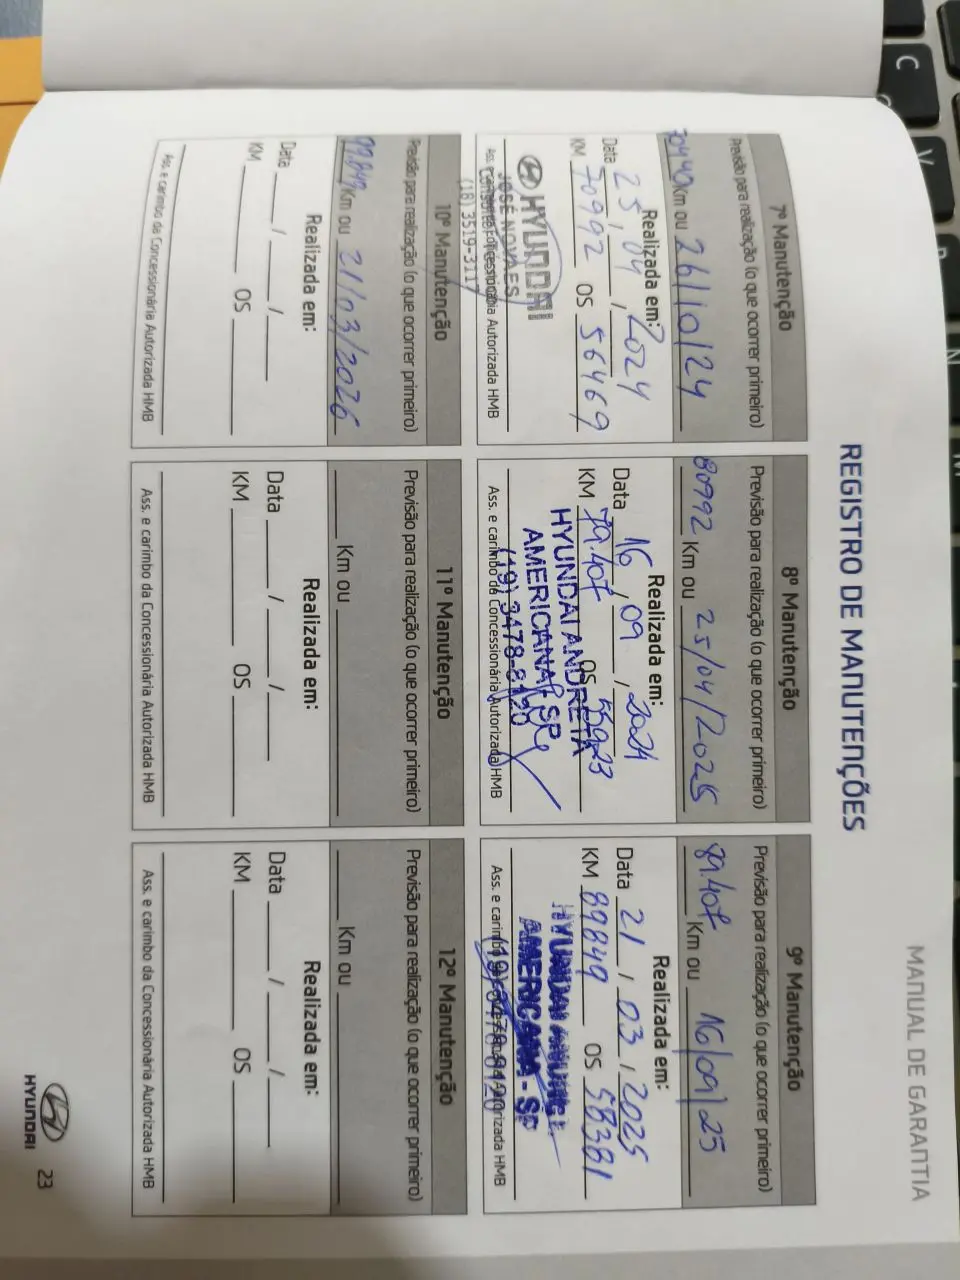 MANUAL DE GARANTIA
REGISTRO DE MANUTENÇÕES
7º Manutenção
Previsão para realização (o que ocorrer primeiro)
70440 Km ou 26/10/24
Realizada em:
Data 25, 04, 2024
KM 70992 OS 56469
HYUNDAI
JOSÉ NOVAES
(18) 3519-3117
Ass. e carimbo da Concessionária Autorizada HMB
8º Manutenção
Previsão para realização (o que ocorrer primeiro)
80992 Km ou 25/04/2025
Realizada em:
Data 16 / 09 / 2024
KM 79.407 OS
HYUNDAI ANDRETA
AMERICANA - SP
(19) 3478-8120
Ass. e carimbo da Concessionária Autorizada HMB
9º Manutenção
Previsão para realização (o que ocorrer primeiro)
89.407 Km ou 16/09/25
Realizada em:
Data 21 / 03 / 2025
KM 89849 OS 58381
HYUNDAI
AMERICANA - SP
(19) 3478-8120
Ass. e carimbo da Concessionária Autorizada HMB
10º Manutenção
Previsão para realização (o que ocorrer primeiro)
99.849 Km ou 21/03/2026
Realizada em:
Data ___/___/___
KM ______ OS ______
Ass. e carimbo da Concessionária Autorizada HMB
11º Manutenção
Previsão para realização (o que ocorrer primeiro)
______ Km ou ______
Realizada em:
Data ___/___/___
KM ______ OS ______
Ass. e carimbo da Concessionária Autorizada HMB
12º Manutenção
Previsão para realização (o que ocorrer primeiro)
______ Km ou ______
Realizada em:
Data ___/___/___
KM ______ OS ______
Ass. e carimbo da Concessionária Autorizada HMB
HYUNDAI 23
C
V
B
N
M